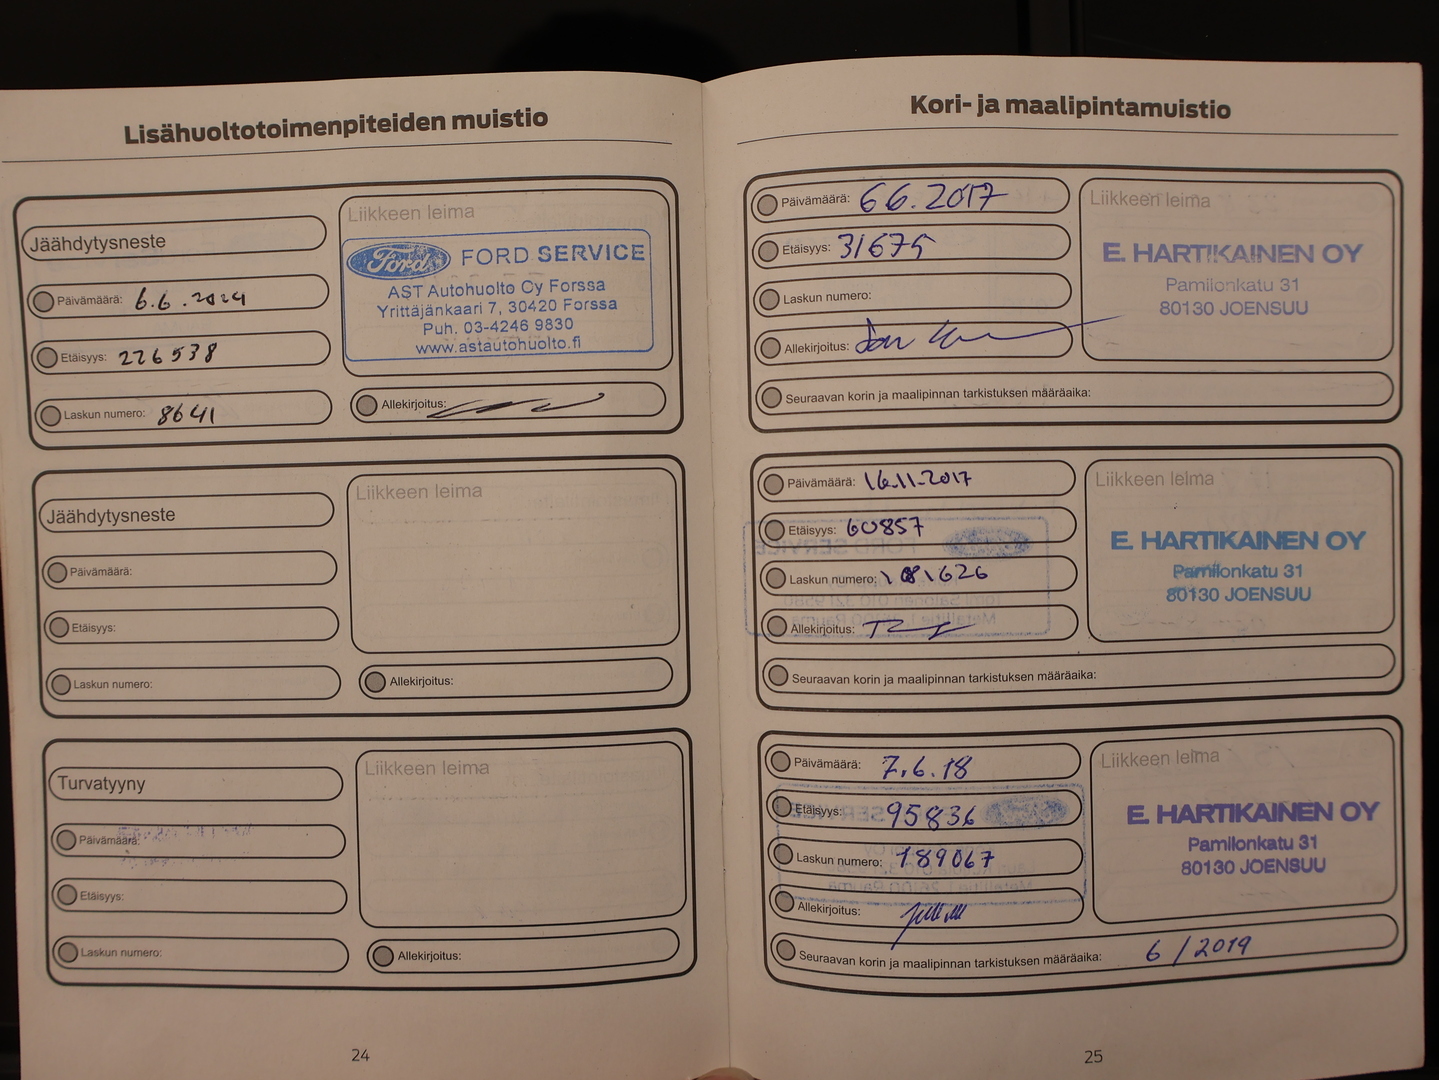 Lisähuoltotoimenpiteiden muistio
Jäähdytysneste
Päivämäärä: 6.6.2024
Etäisyys: 226538
Laskun numero: 8641
Liikkeen leima
Ford FORD SERVICE
AST Autohuolto Oy Forssa
Yrittäjänkaari 7, 30420 Forssa
Puh. 03-4246 9830
www.astautohuolto.fi
Allekirjoitus:
Jäähdytysneste
Päivämäärä:
Etäisyys:
Laskun numero:
Liikkeen leima
Allekirjoitus:
Turvatyyny
Päivämäärä:
Etäisyys:
Laskun numero:
Liikkeen leima
Allekirjoitus:
24
Kori- ja maalipintamuistio
Päivämäärä: 6.6.2017
Etäisyys: 31675
Laskun numero:
Allekirjoitus:
Liikkeen leima
E. HARTIKAINEN OY
Pamilonkatu 31
80130 JOENSUU
Seuraavan korin ja maalipinnan tarkistuksen määräaika:
Päivämäärä: 16.11.2017
Etäisyys: 60857
Laskun numero: 181626
Allekirjoitus:
Liikkeen leima
E. HARTIKAINEN OY
Pamilonkatu 31
80130 JOENSUU
Seuraavan korin ja maalipinnan tarkistuksen määräaika:
Päivämäärä: 7.6.18
Etäisyys: 95836
Laskun numero: 189067
Allekirjoitus:
Liikkeen leima
E. HARTIKAINEN OY
Pamilonkatu 31
80130 JOENSUU
Seuraavan korin ja maalipinnan tarkistuksen määräaika: 6/2019
25